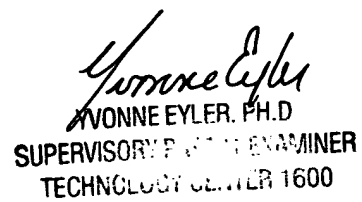 Yvonne Eyler
YVONNE EYLER, PH.D
SUPERVISORY EXAMINER
TECHNOLOGY CENTER 1600